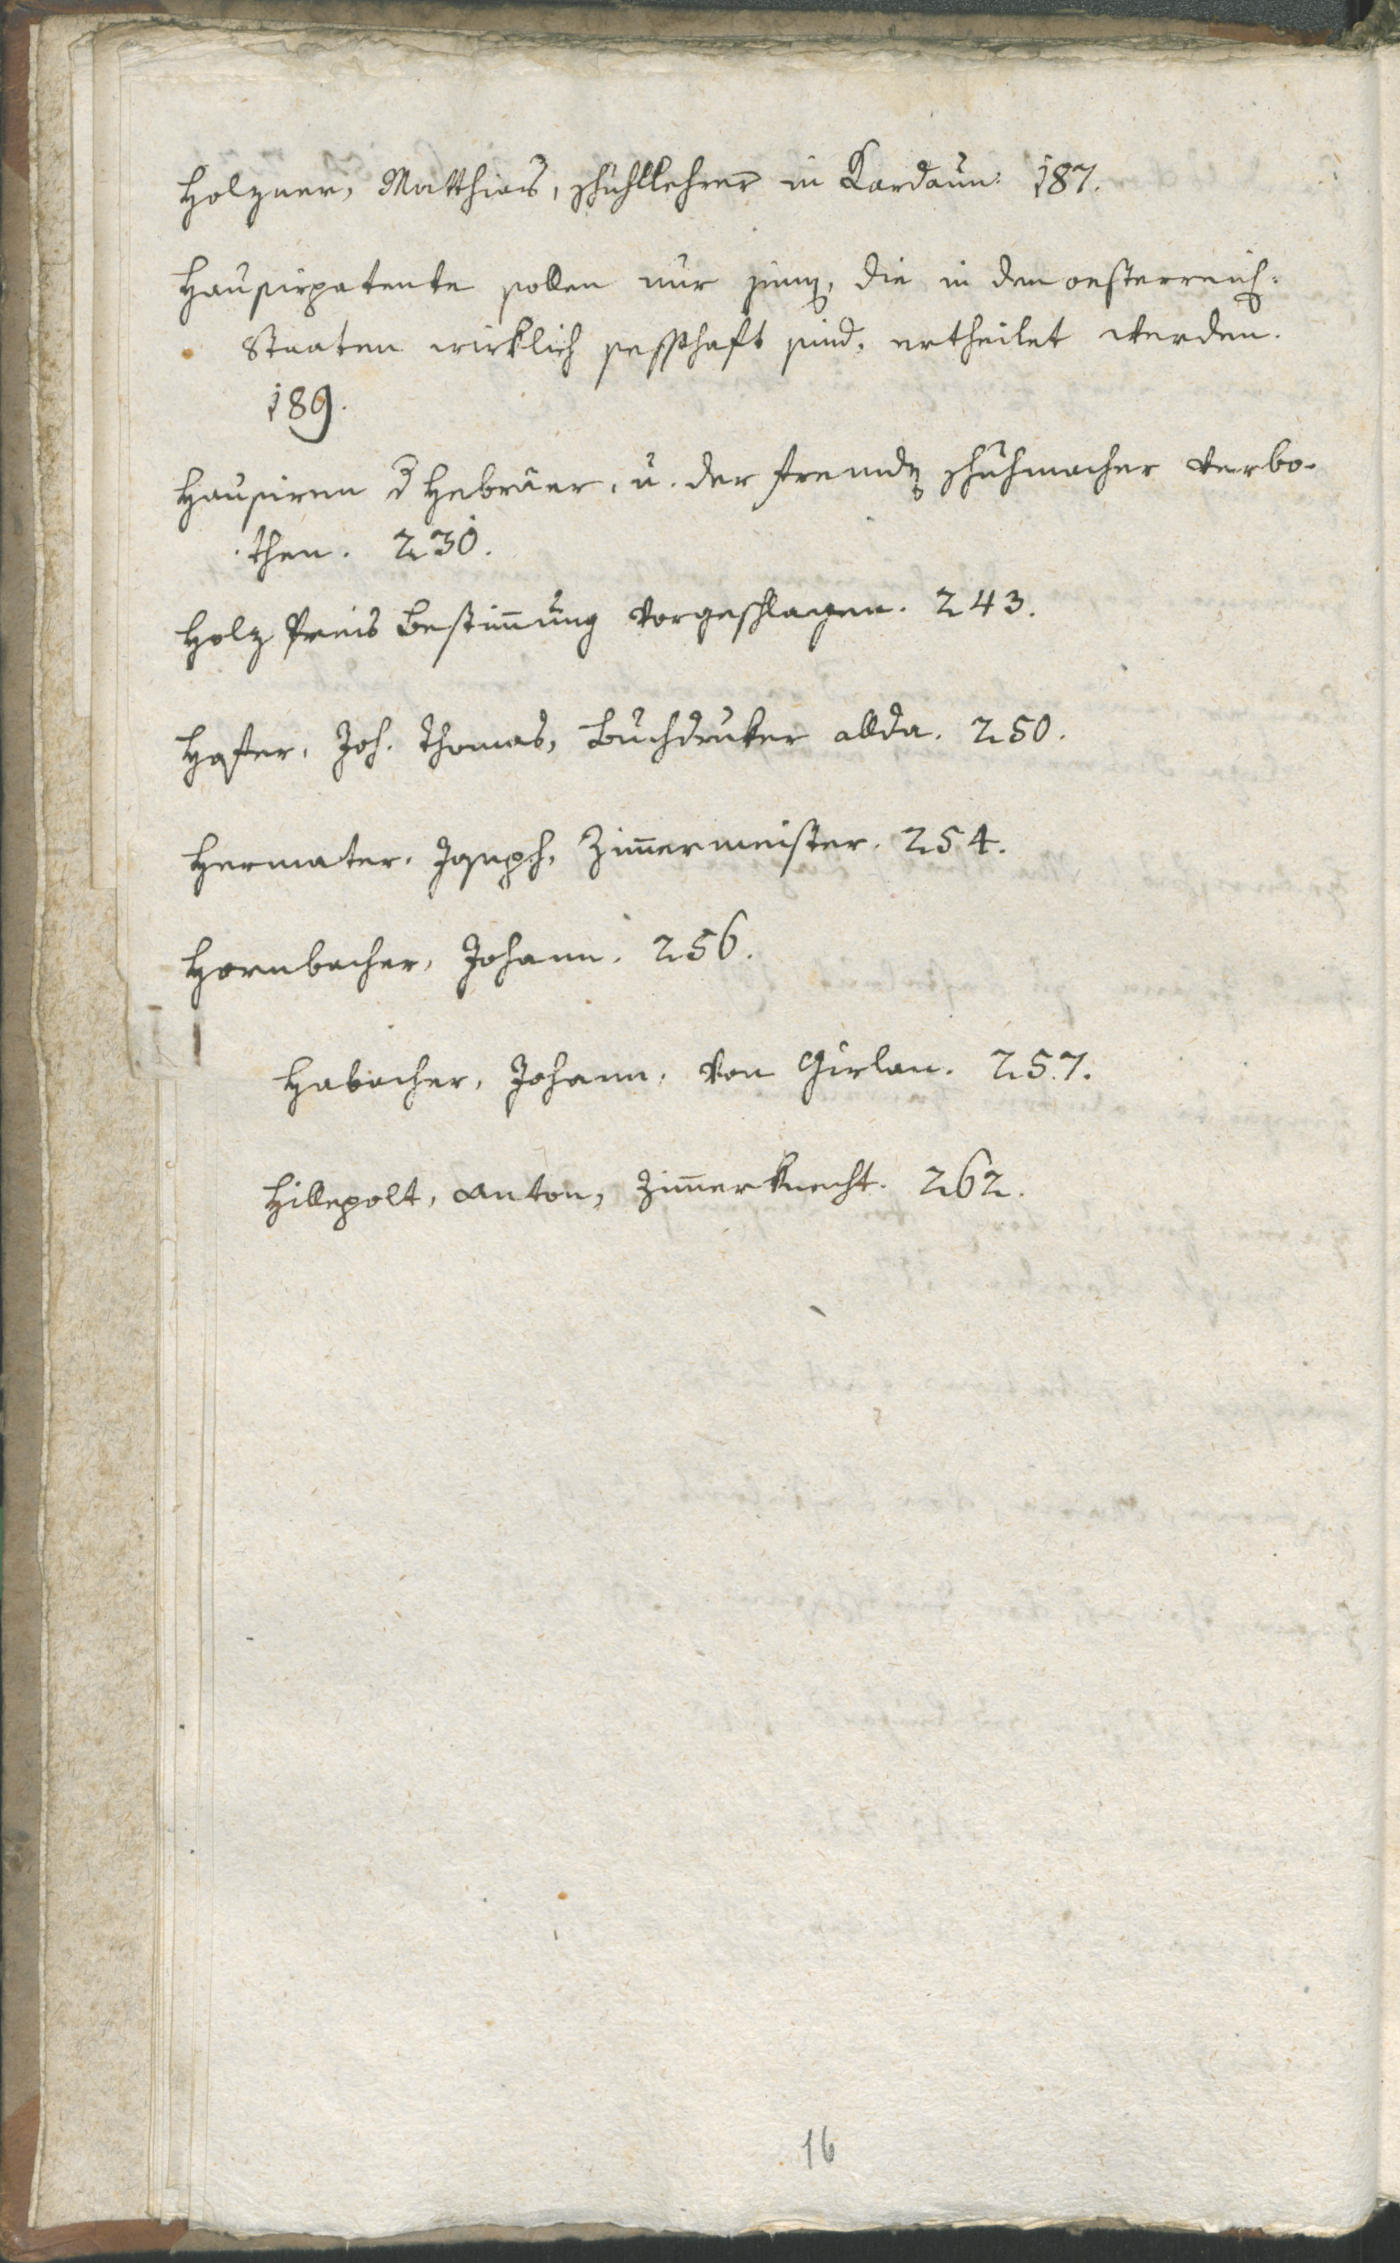 Holzner, Matthias, Schullehrer in Kardaun. 187.
Hausirpatente sollen nur jenen, die in den oesterreich:
Staaten wirklich sesshaft sind, ertheilet werden.
189.
Hausiren d Hebräer, u. der fremden Schuhmacher verbo-
then. 230.
Holz Preis Bestimmung vorgeschlagen. 243.
Joh. Thomas, Buchdruker allda. 250.
Hermater, Joseph, Zimmermeister. 254.
Hornbacher, Johann. 256.
Habacher, Johann, von Girlan. 257.
Hillepolt, Anton, Zimmerknecht. 262.
16